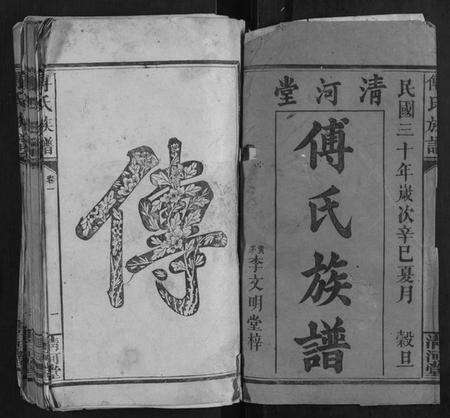 傅氏族譜
清河堂
民國三十年歲次辛巳夏月 穀旦
清河堂
傅氏族譜
李文明堂梓
傅
傅氏族譜
卷一
一
清河堂